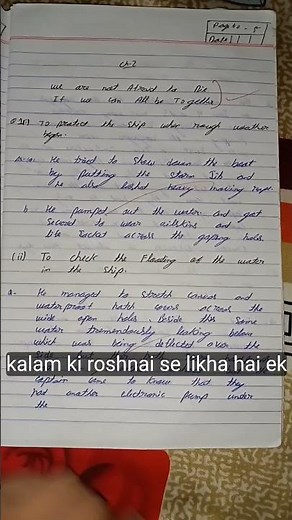 Page No - 5
Date
Ch.2
we are not Afraid to Die
If we can All be Together
To protect the ship when rough weather
began.
He tried to slow down the boat
by putting the storm Jib and
He also lashed heavy mooring rope
b. He pumped out the water and got
across the gaping holes.
(ii) To check the Flooding of the water
in the ship.
a. He managed to stretch canvas and
waterproof hatch covers across the
wide open holes. Beside this some
water tremendously leaking below
which was being deflected over the
kalam ki roshnai se likha hai ek
captain came to know that they
had another electronic pump under
the